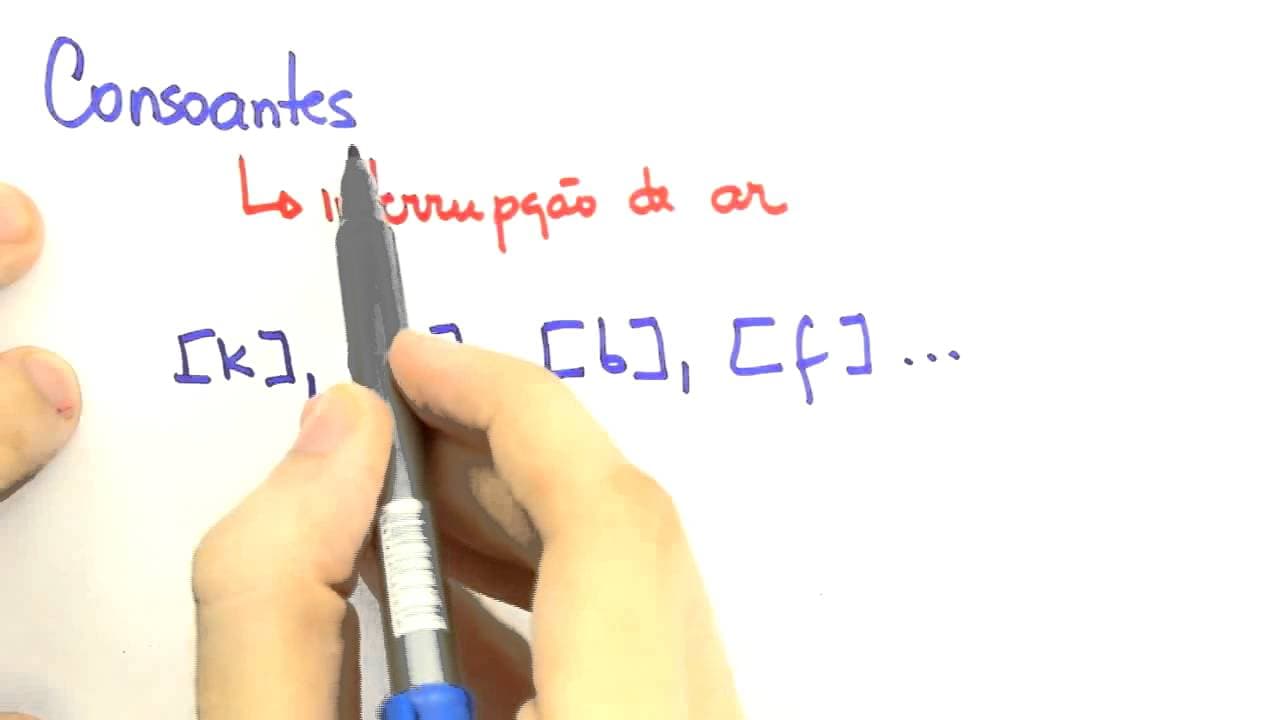 Consoantes
interrupção de ar
[k], [b], [f]...